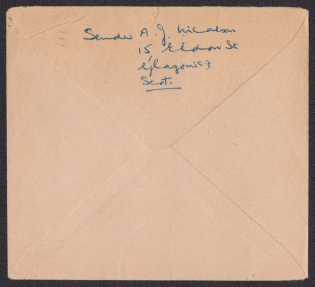 Sender A. J. Nicolson
15 Eldon St
Glasgow C3
Scot.